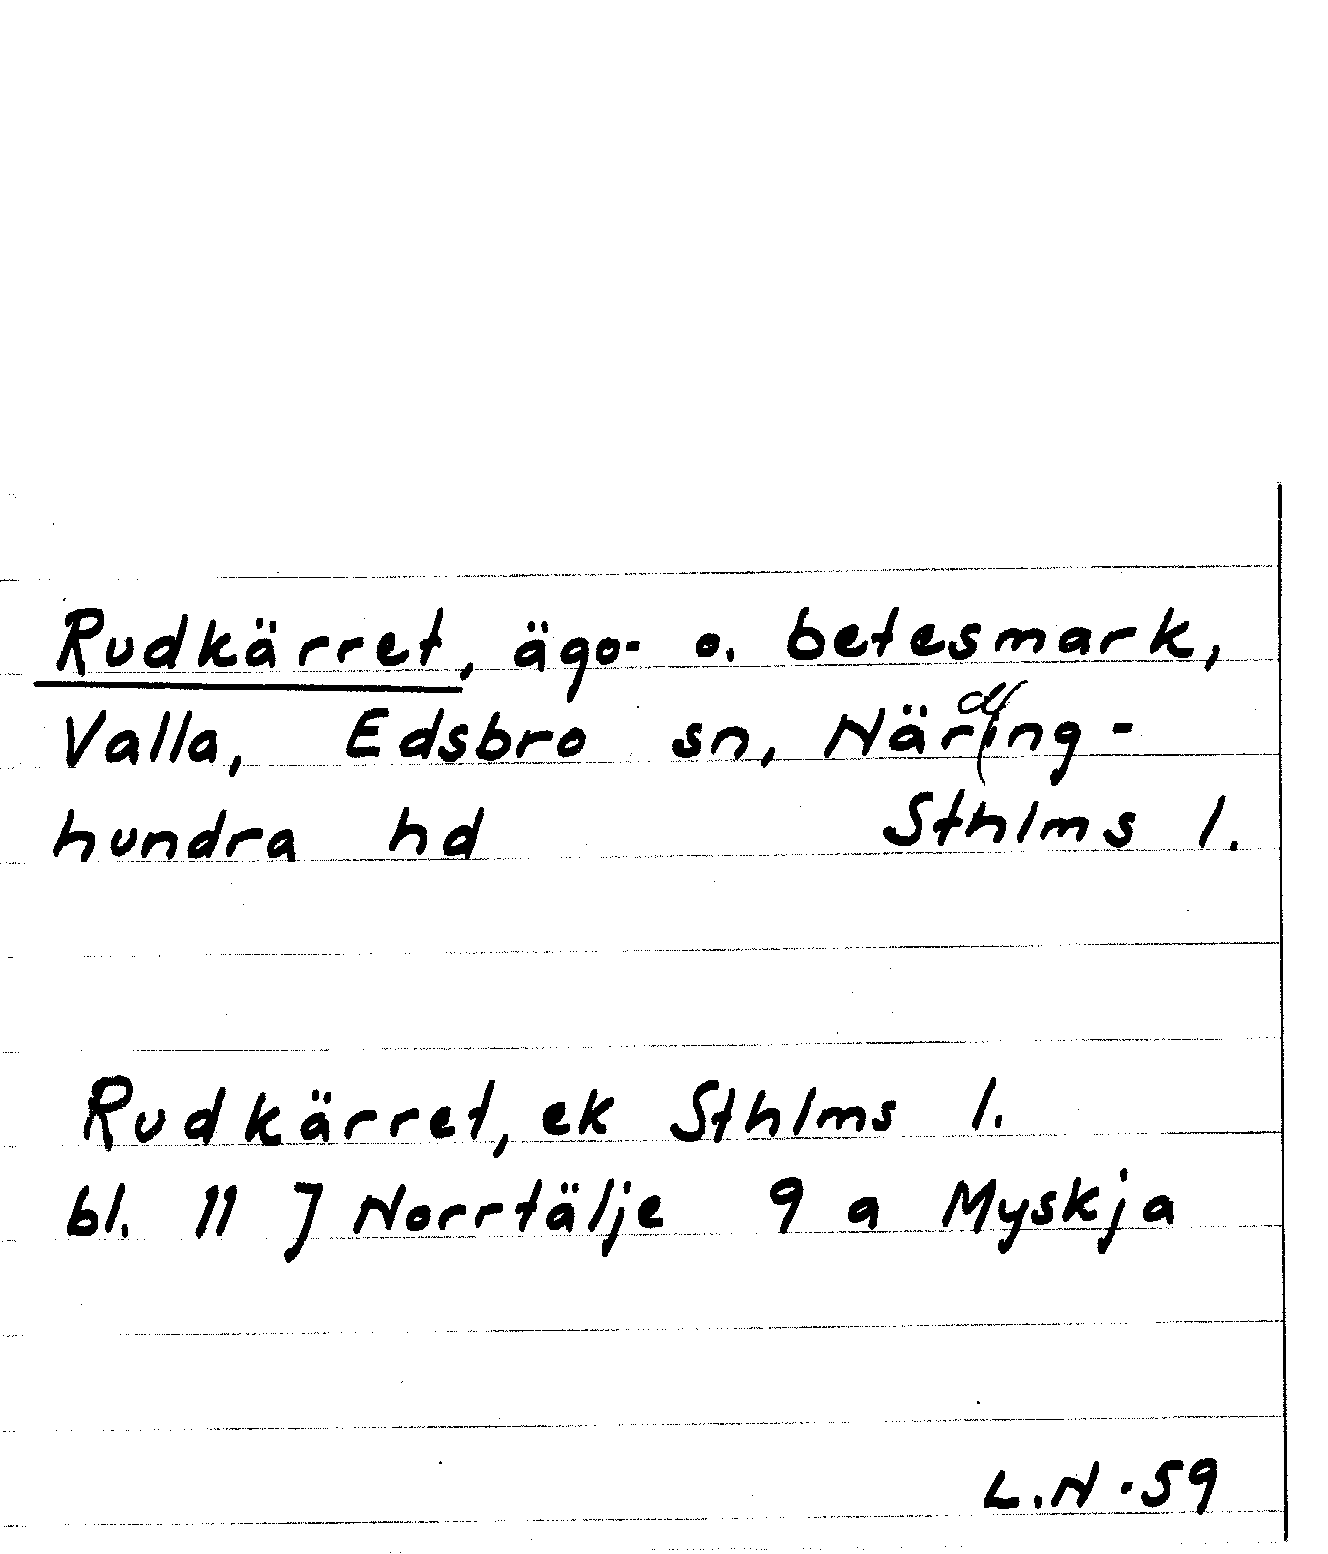 Rudkärret, ägo- o. betesmark,
Valla, Edsbro sn, Näring-
hundra hd Sthlms l.
Rudkärret, ek Sthlms l.
bl. 11 J Norrtälje 9 a Myskja
L.N.59